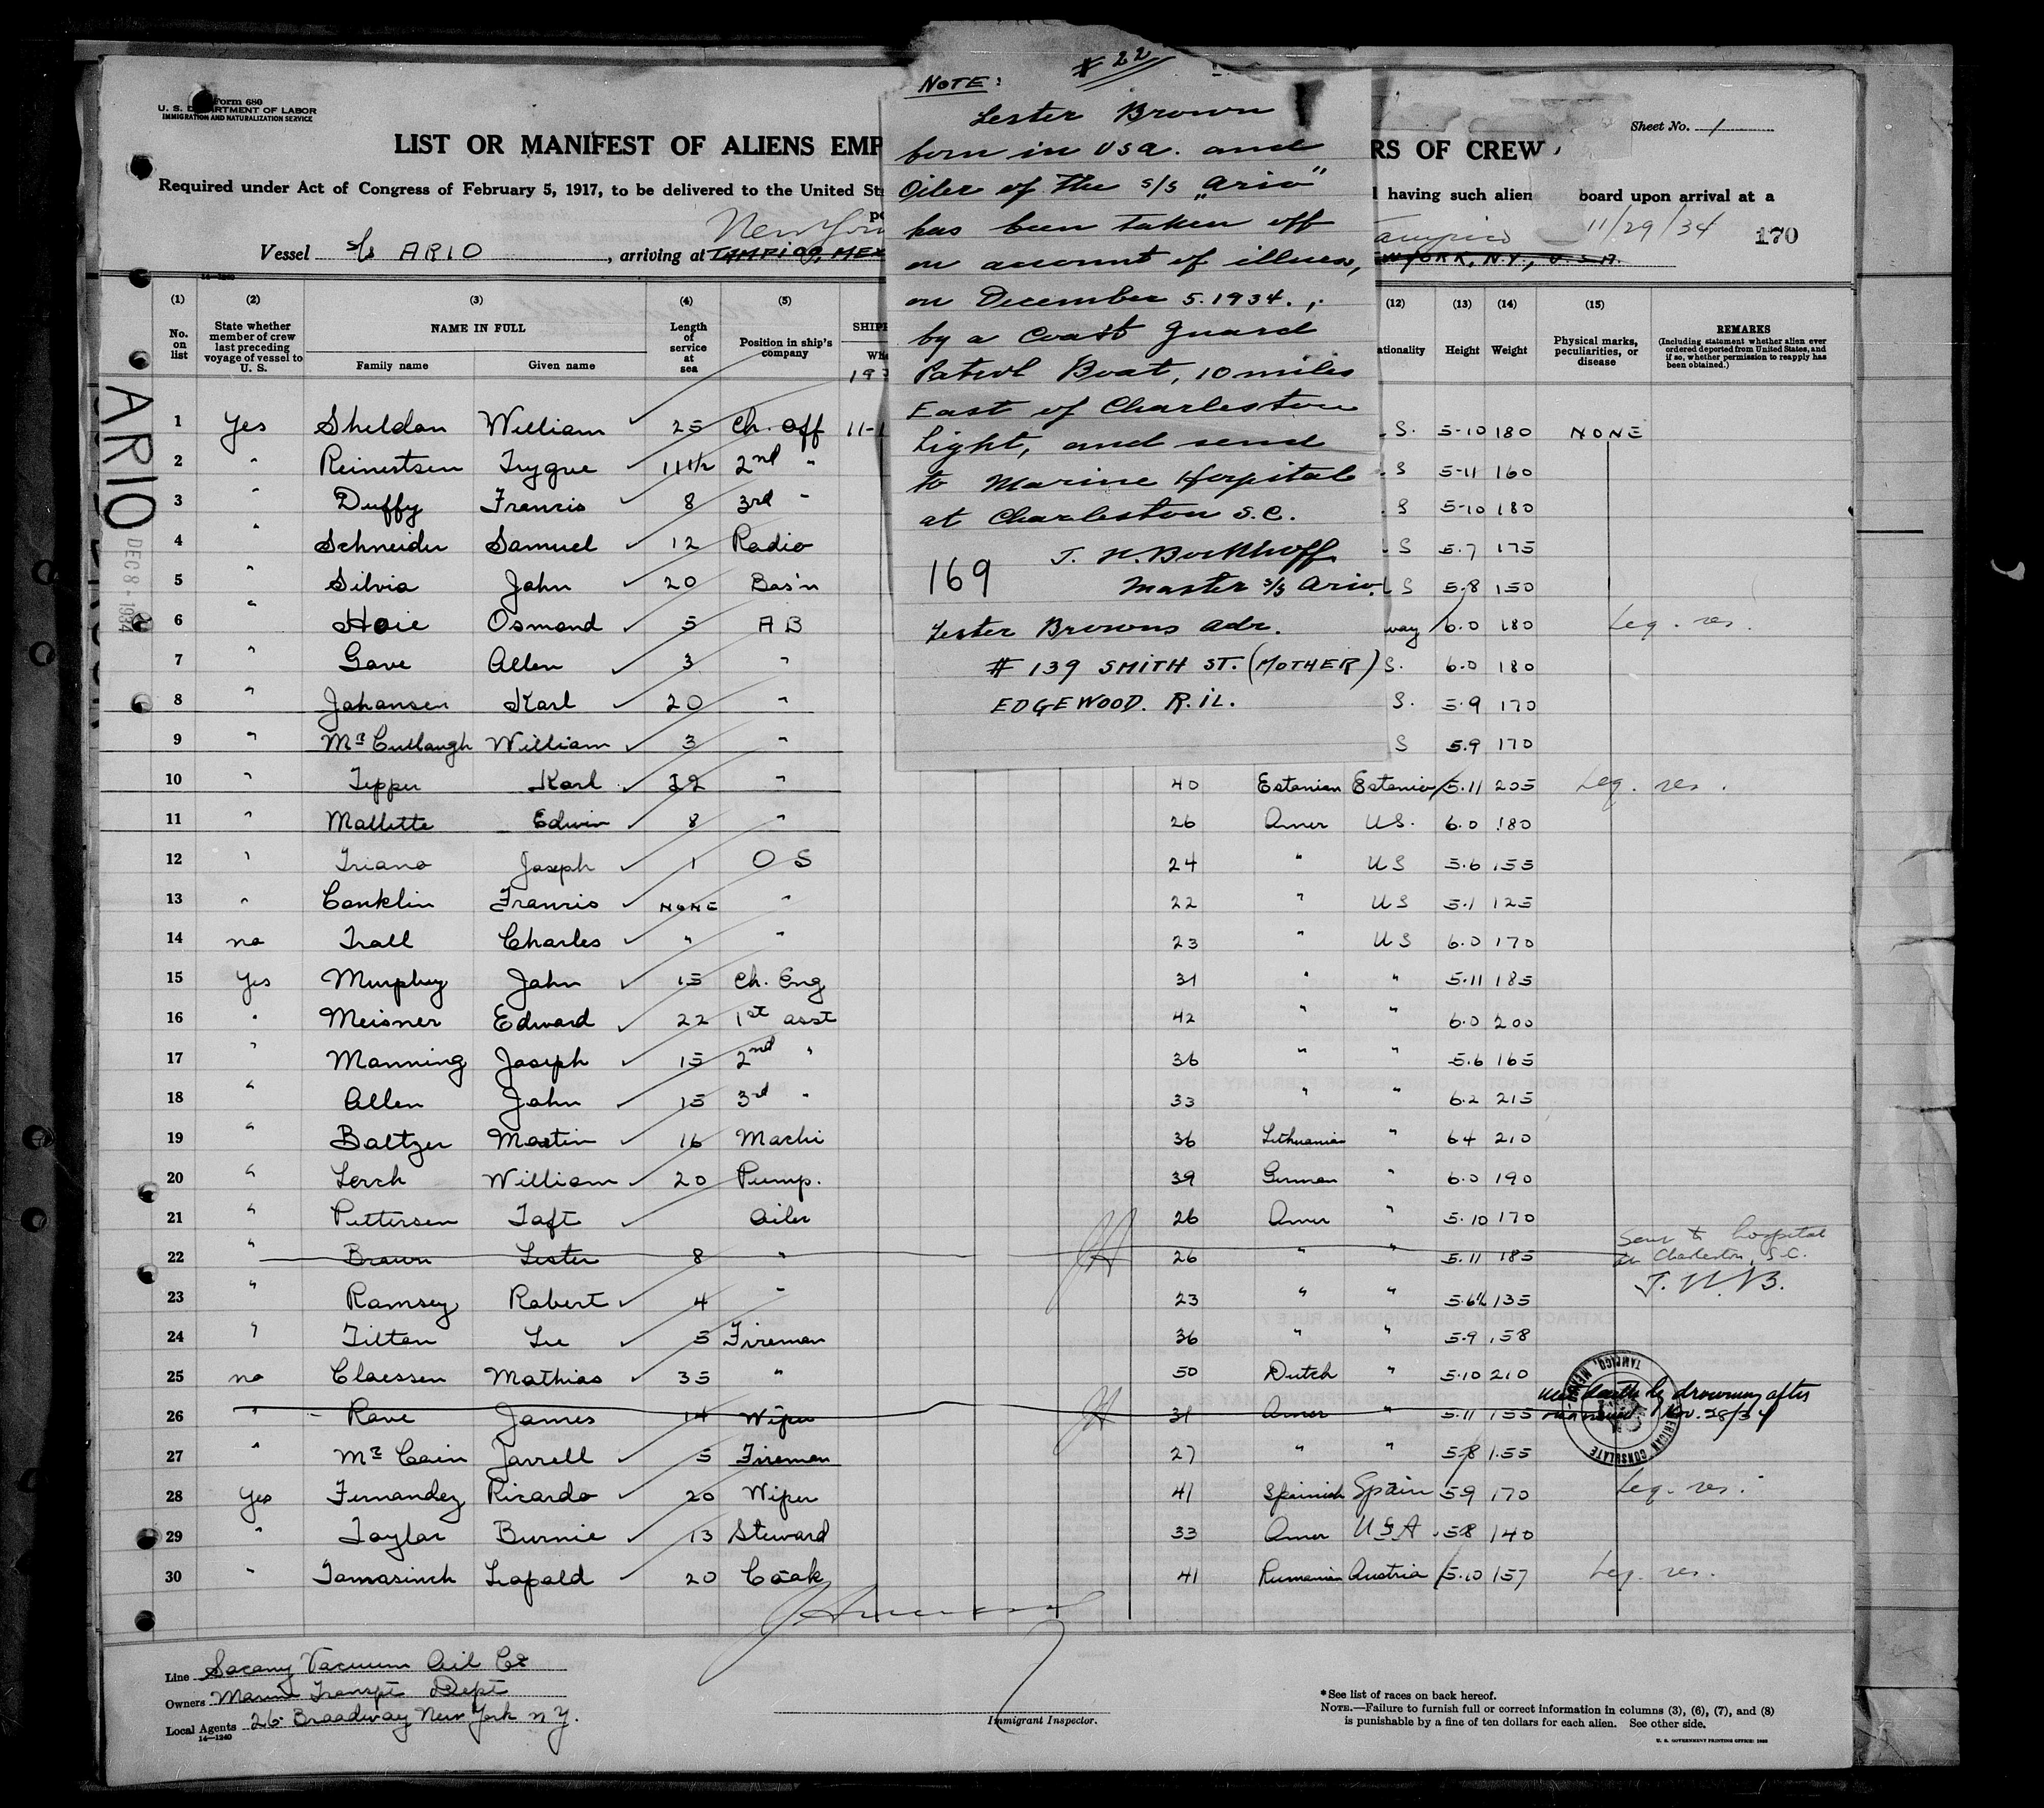 NOTE: # 22
Lester Brown
born in USA. and
Oiler of the s/s "Ario"
has been taken off
on account of illness,
on December 5. 1934.,
by a Coast Guard
Patrol Boat, 10 miles
East of Charleston
Light, and send
to Marine Hospital
at Charleston S.C.
169
Master s/s Ario.
Lester Browns adr.
# 139 SMITH ST. (MOTHER)
EDGEWOOD. R.IL.
Form 680
U. S. DEPARTMENT OF LABOR
IMMIGRATION AND NATURALIZATION SERVICE
Sheet No. 1
LIST OR MANIFEST OF ALIENS EMP RS OF CREW
Required under Act of Congress of February 5, 1917, to be delivered to the United St having such alien board upon arrival at a
New York Tampico 11/29/34 170
Vessel s/s ARIO, arriving at TAMPICO, MEX YORK, N.Y., U.S.A.
(1) (2) (3) (4) (5) (12) (13) (14) (15)
No. on list
State whether member of crew last preceding voyage of vessel to U. S.
NAME IN FULL
Family name Given name
Length of service at sea
Position in ship's company
SHIPP
Wh
193
ationality Height Weight
Physical marks, peculiarities, or disease
REMARKS
(Including statement whether alien ever ordered deported from United States, and if so, whether permission to reapply has been obtained.)
ARIO
DEC 8 - 1934
1 Yes Sheldon William 25 Ch. Off 11-1 S. 5-10 180 NONE
2 " Reinertsen Trygve 11 1/2 2nd " S 5-11 160
3 " Duffy Francis 8 3rd " S 5-10 180
4 " Schneider Samuel 12 Radio S 5.7 175
5 " Silvia John 20 Bos'n S 5.8 150
6 " Hoie Osmond 5 A B way 6.0 180 Leg. res.
7 " Gove Allen 3 " S. 6.0 180
8 " Johansen Karl 20 " S. 5.9 170
9 " McCullough William 3 " S 5.9 170
10 " Tepper Karl " 40 Estonian Estonia 5.11 205 Leg. res.
11 " Mallette Edwin 8 " 26 Amer U.S. 6.0 180
12 " Triano Joseph 1 O S 24 " U S 5.6 155
13 " Conklin Francis NONE " 22 " U S 5.1 125
14 no Trall Charles " " 23 " U S 6.0 170
15 Yes Murphy John 15 Ch. Eng 31 " " 5.11 185
16 " Meisner Edward 22 1st asst 42 " " 6.0 200
17 " Manning Joseph 15 2nd " 36 " " 5.6 165
18 " Allen John 15 3rd " 33 " " 6.2 215
19 " Baltzer Martin 16 Machi 36 Lithuanian " 6.4 210
20 " Lerch William 20 Pump. 39 German " 6.0 190
21 " Pettersen Taft Oiler 26 Amer " 5.10 170
22 " Brown Lester 8 " 26 " " 5.11 185 Sent to hospital
at Charleston, S.C.
23 " Ramsey Robert 4 " 23 " " 5.6 1/2 135
24 " Tilton Lee 5 Fireman 36 " " 5.9 158
25 no Claessen Mathias 35 " 50 Dutch " 5.10 210
26 " Rave James 14 Wiper 31 Amer " 5.11 155 death by drowning after
Nov. 28/34
AMERICAN CONSULATE TAMPICO, MEXICO
27 " McCain Jarrell 5 Fireman 27 " " 5.8 155
28 Yes Fernandez Ricardo 20 Wiper 41 Spanish Spain 5.9 170 Leg. res.
29 " Taylor Burnie 13 Steward 33 Amer USA 5.8 140
30 " Tomasinch Leopold 20 Cook 41 Rumanian Austria 5.10 157 Leg. res.
Line Socony Vacuum Oil Co
Owners Marine Transpt Dept
Local Agents 26 Broadway New York N Y.
14—1240
Immigrant Inspector.
*See list of races on back hereof.
NOTE.—Failure to furnish full or correct information in columns (3), (6), (7), and (8)
is punishable by a fine of ten dollars for each alien. See other side.
U. S. GOVERNMENT PRINTING OFFICE: